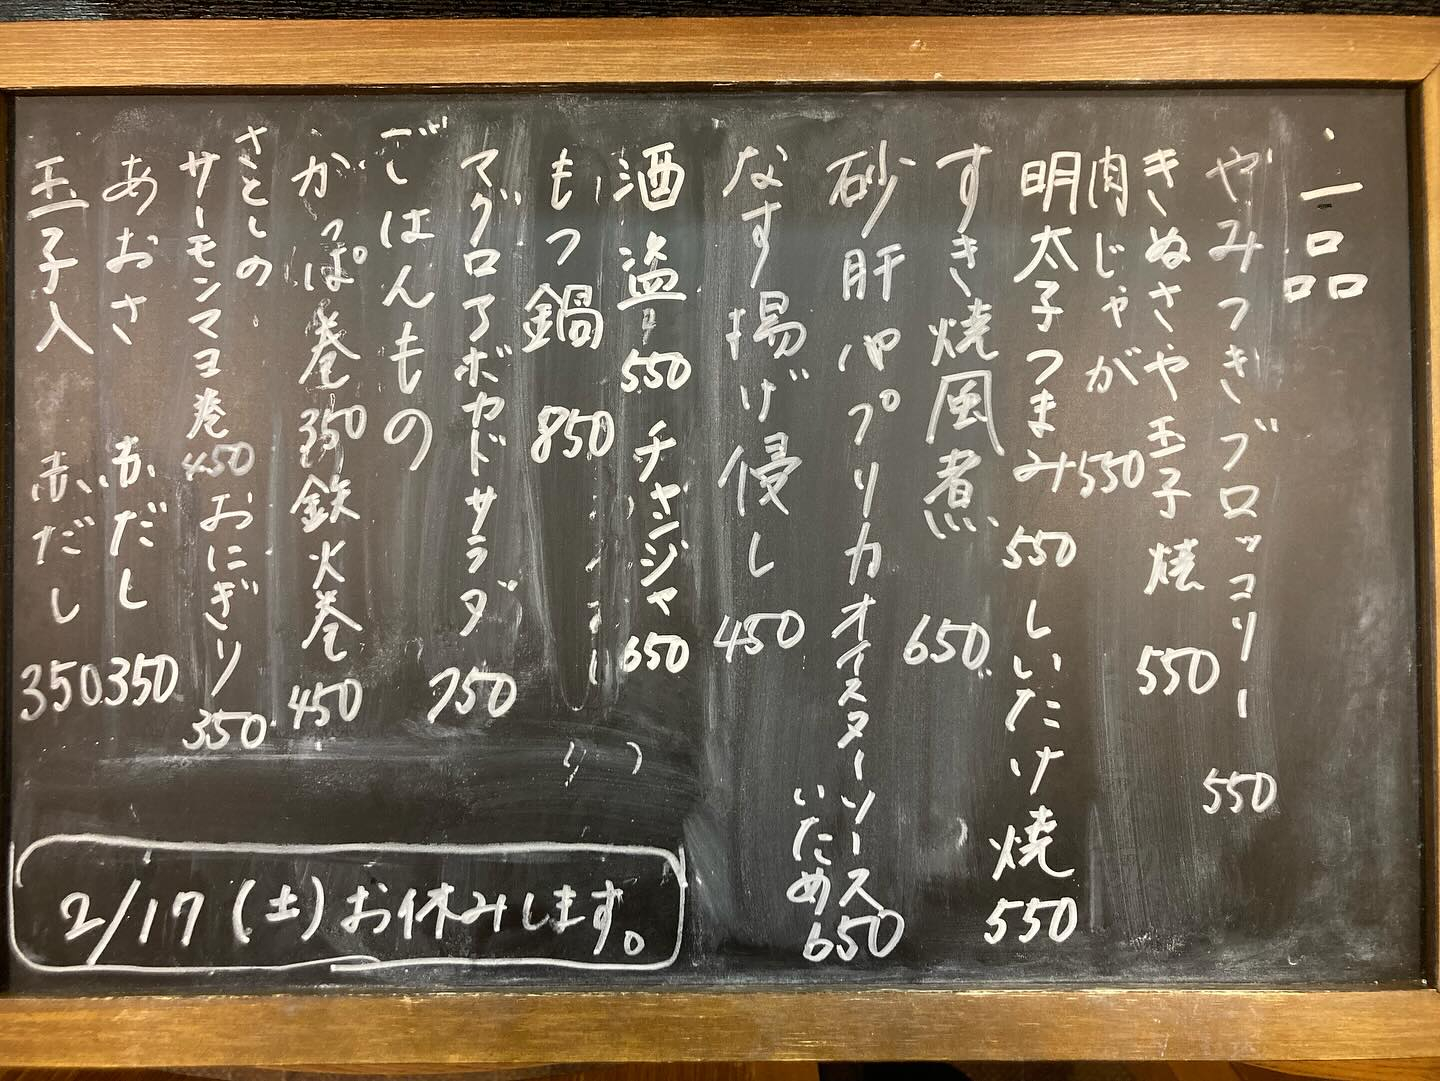 一品
やみつきブロッコリー 550
きぬさや玉子焼 550
肉じゃが 550
明太子つまみ 550 しいたけ焼 550
すき焼風煮 650
砂肝パプリカオイスターソース
いため 650
なす揚げ浸し 450
酒盗 550 チャンジャ 650
もつ鍋 850
マグロアボカドサラダ 750
ごはんもの
かっぱ巻 350 鉄火巻 450
さとしの
サーモンマヨ巻 450 おにぎり 350
あおさ 赤だし 350
玉子入 赤だし 350
2/17(土)お休みします。